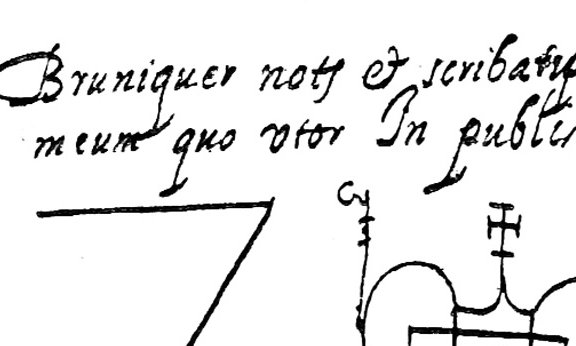 Bruniquer nots & scriba
meum quo vtor In publi